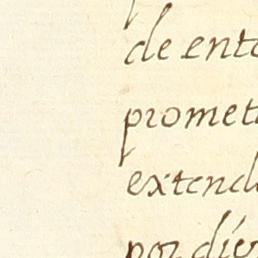 de ento
promet
extend
por div